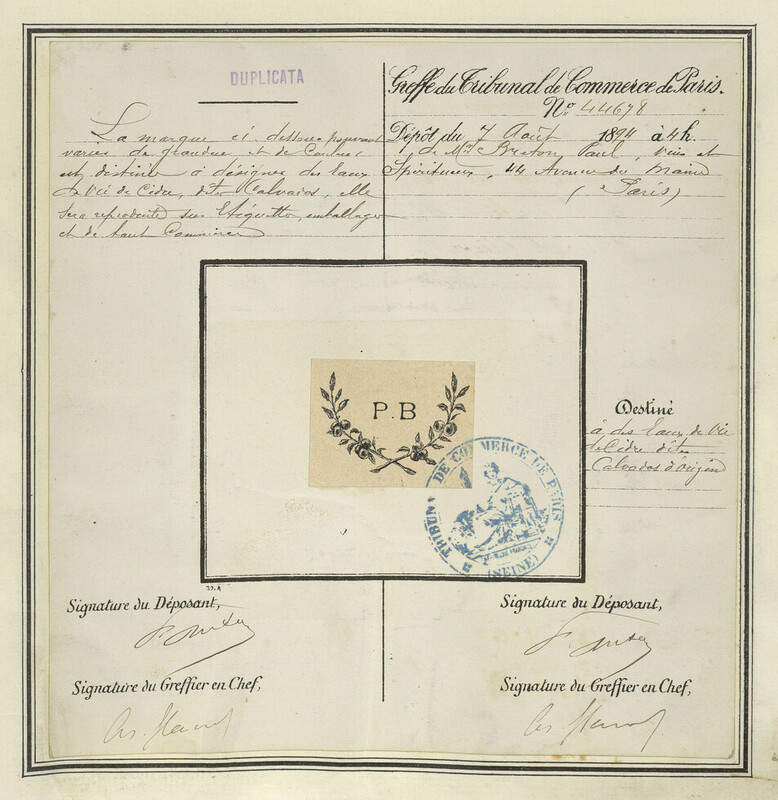 DUPLICATA
La marque ci dessus pouvant
varier de grandeur et de Couleur
est destinée à désigner des Eaux
de Vie de Cidre, dites Calvados, elle
sera reproduite sur Etiquettes, emballages
et de haut Commerce
Greffe du Tribunal de Commerce de Paris.
N.º 44678
Dépôt du 7 Août 1894 à 4h.
de Mr Breton Paul, vins et
Spiritueux, 44 Avenue du Maine
(Paris)
P.B
Destiné
à des Eaux de Vie
de Cidre dites
Calvados d'origine
TRIBUNAL DE COMMERCE DE PARIS
(SEINE)
Signature du Déposant,
Signature du Greffier en Chef,
Signature du Déposant,
Signature du Greffier en Chef,